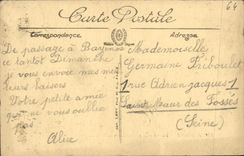 64
Carte Postale
Correspondance
Adresse
De passage à Bay
ce tantôt Dimanche
je vous envoie mes
leurs baisers
Votre petite amie
qui ne vous oublie
pas
Alice
Mademoiselle
Germaine Triboulet
1 rue Adrien Jacques 1
Saint Maur des Fossés
(Seine)